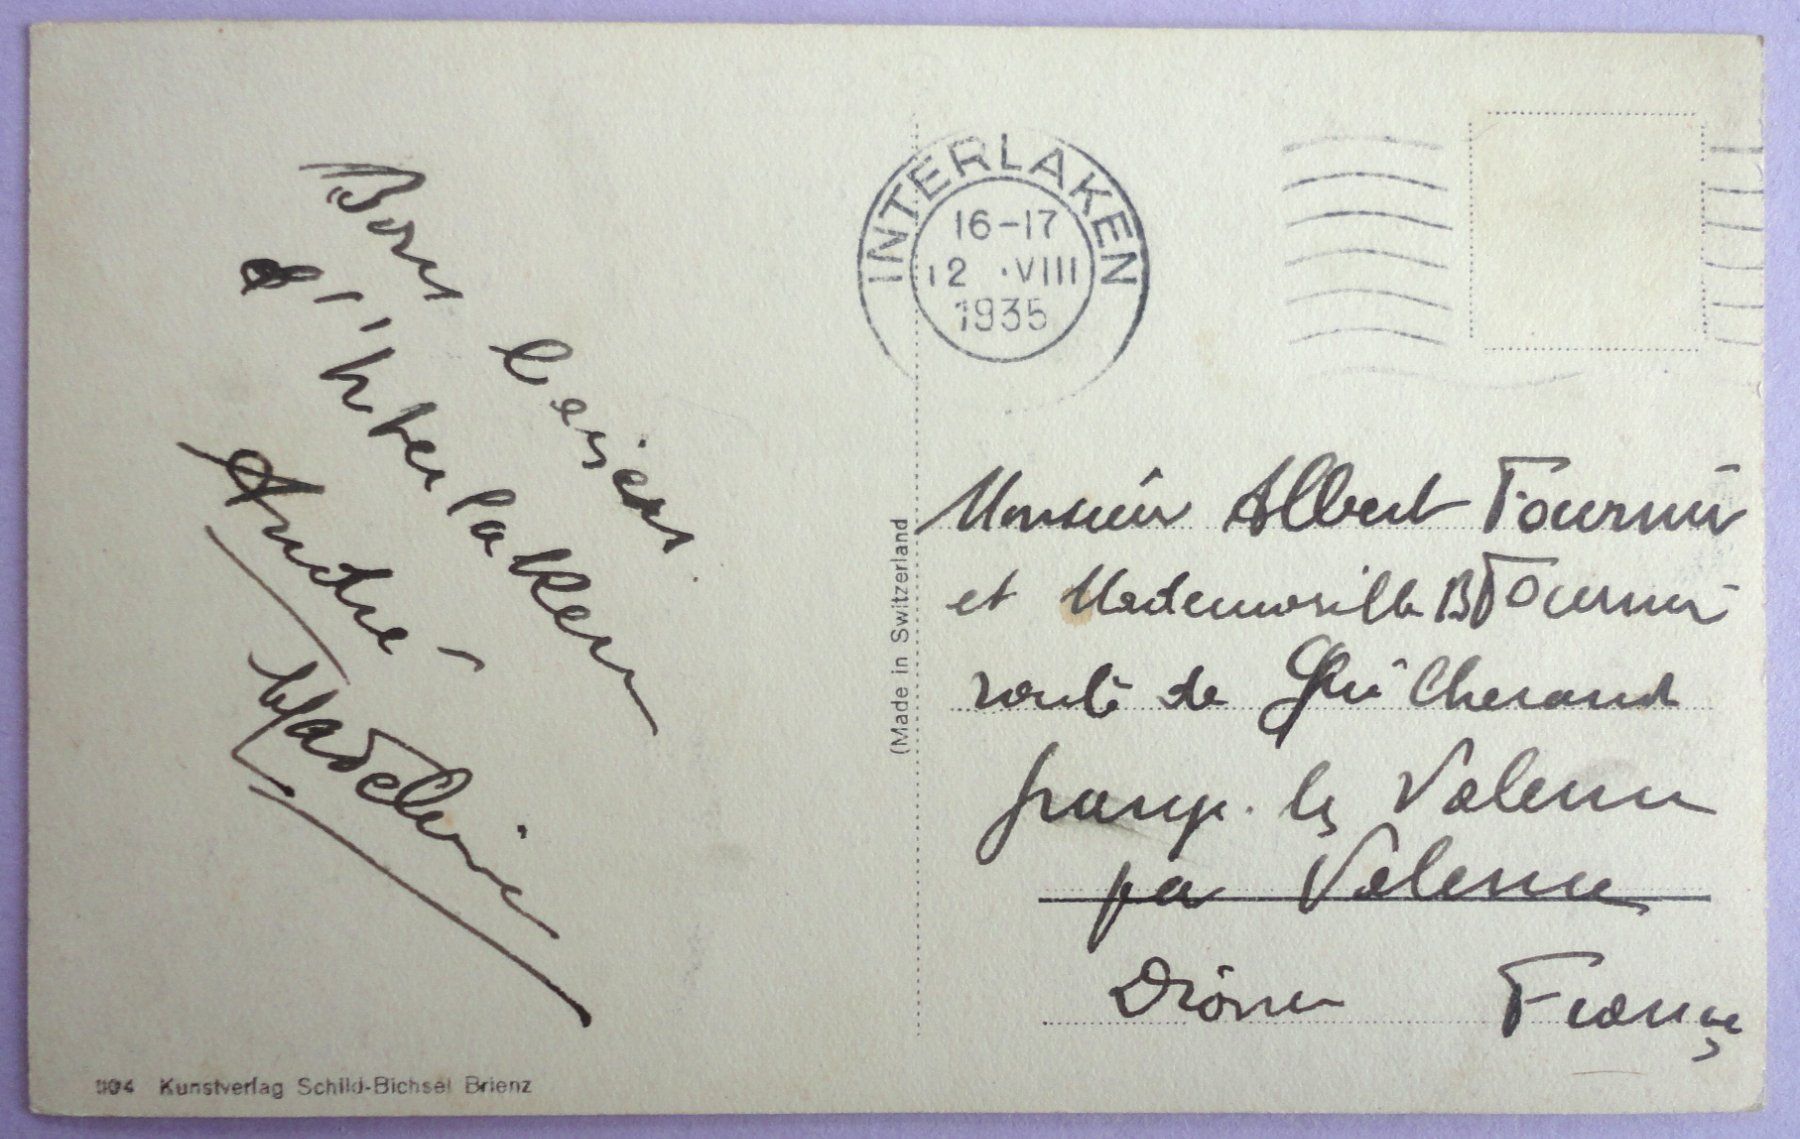 Bons baisers
d'Interlaken
André
Madeleine
INTERLAKEN
16-17
12 .VIII
1935
(Made in Switzerland
Monsieur Albert Fournier
et Mademoiselle B Fournier
route de Guilherand
Grange les Valence
par Valence
Drôme France
904 Kunstverlag Schild-Bichsel Brienz